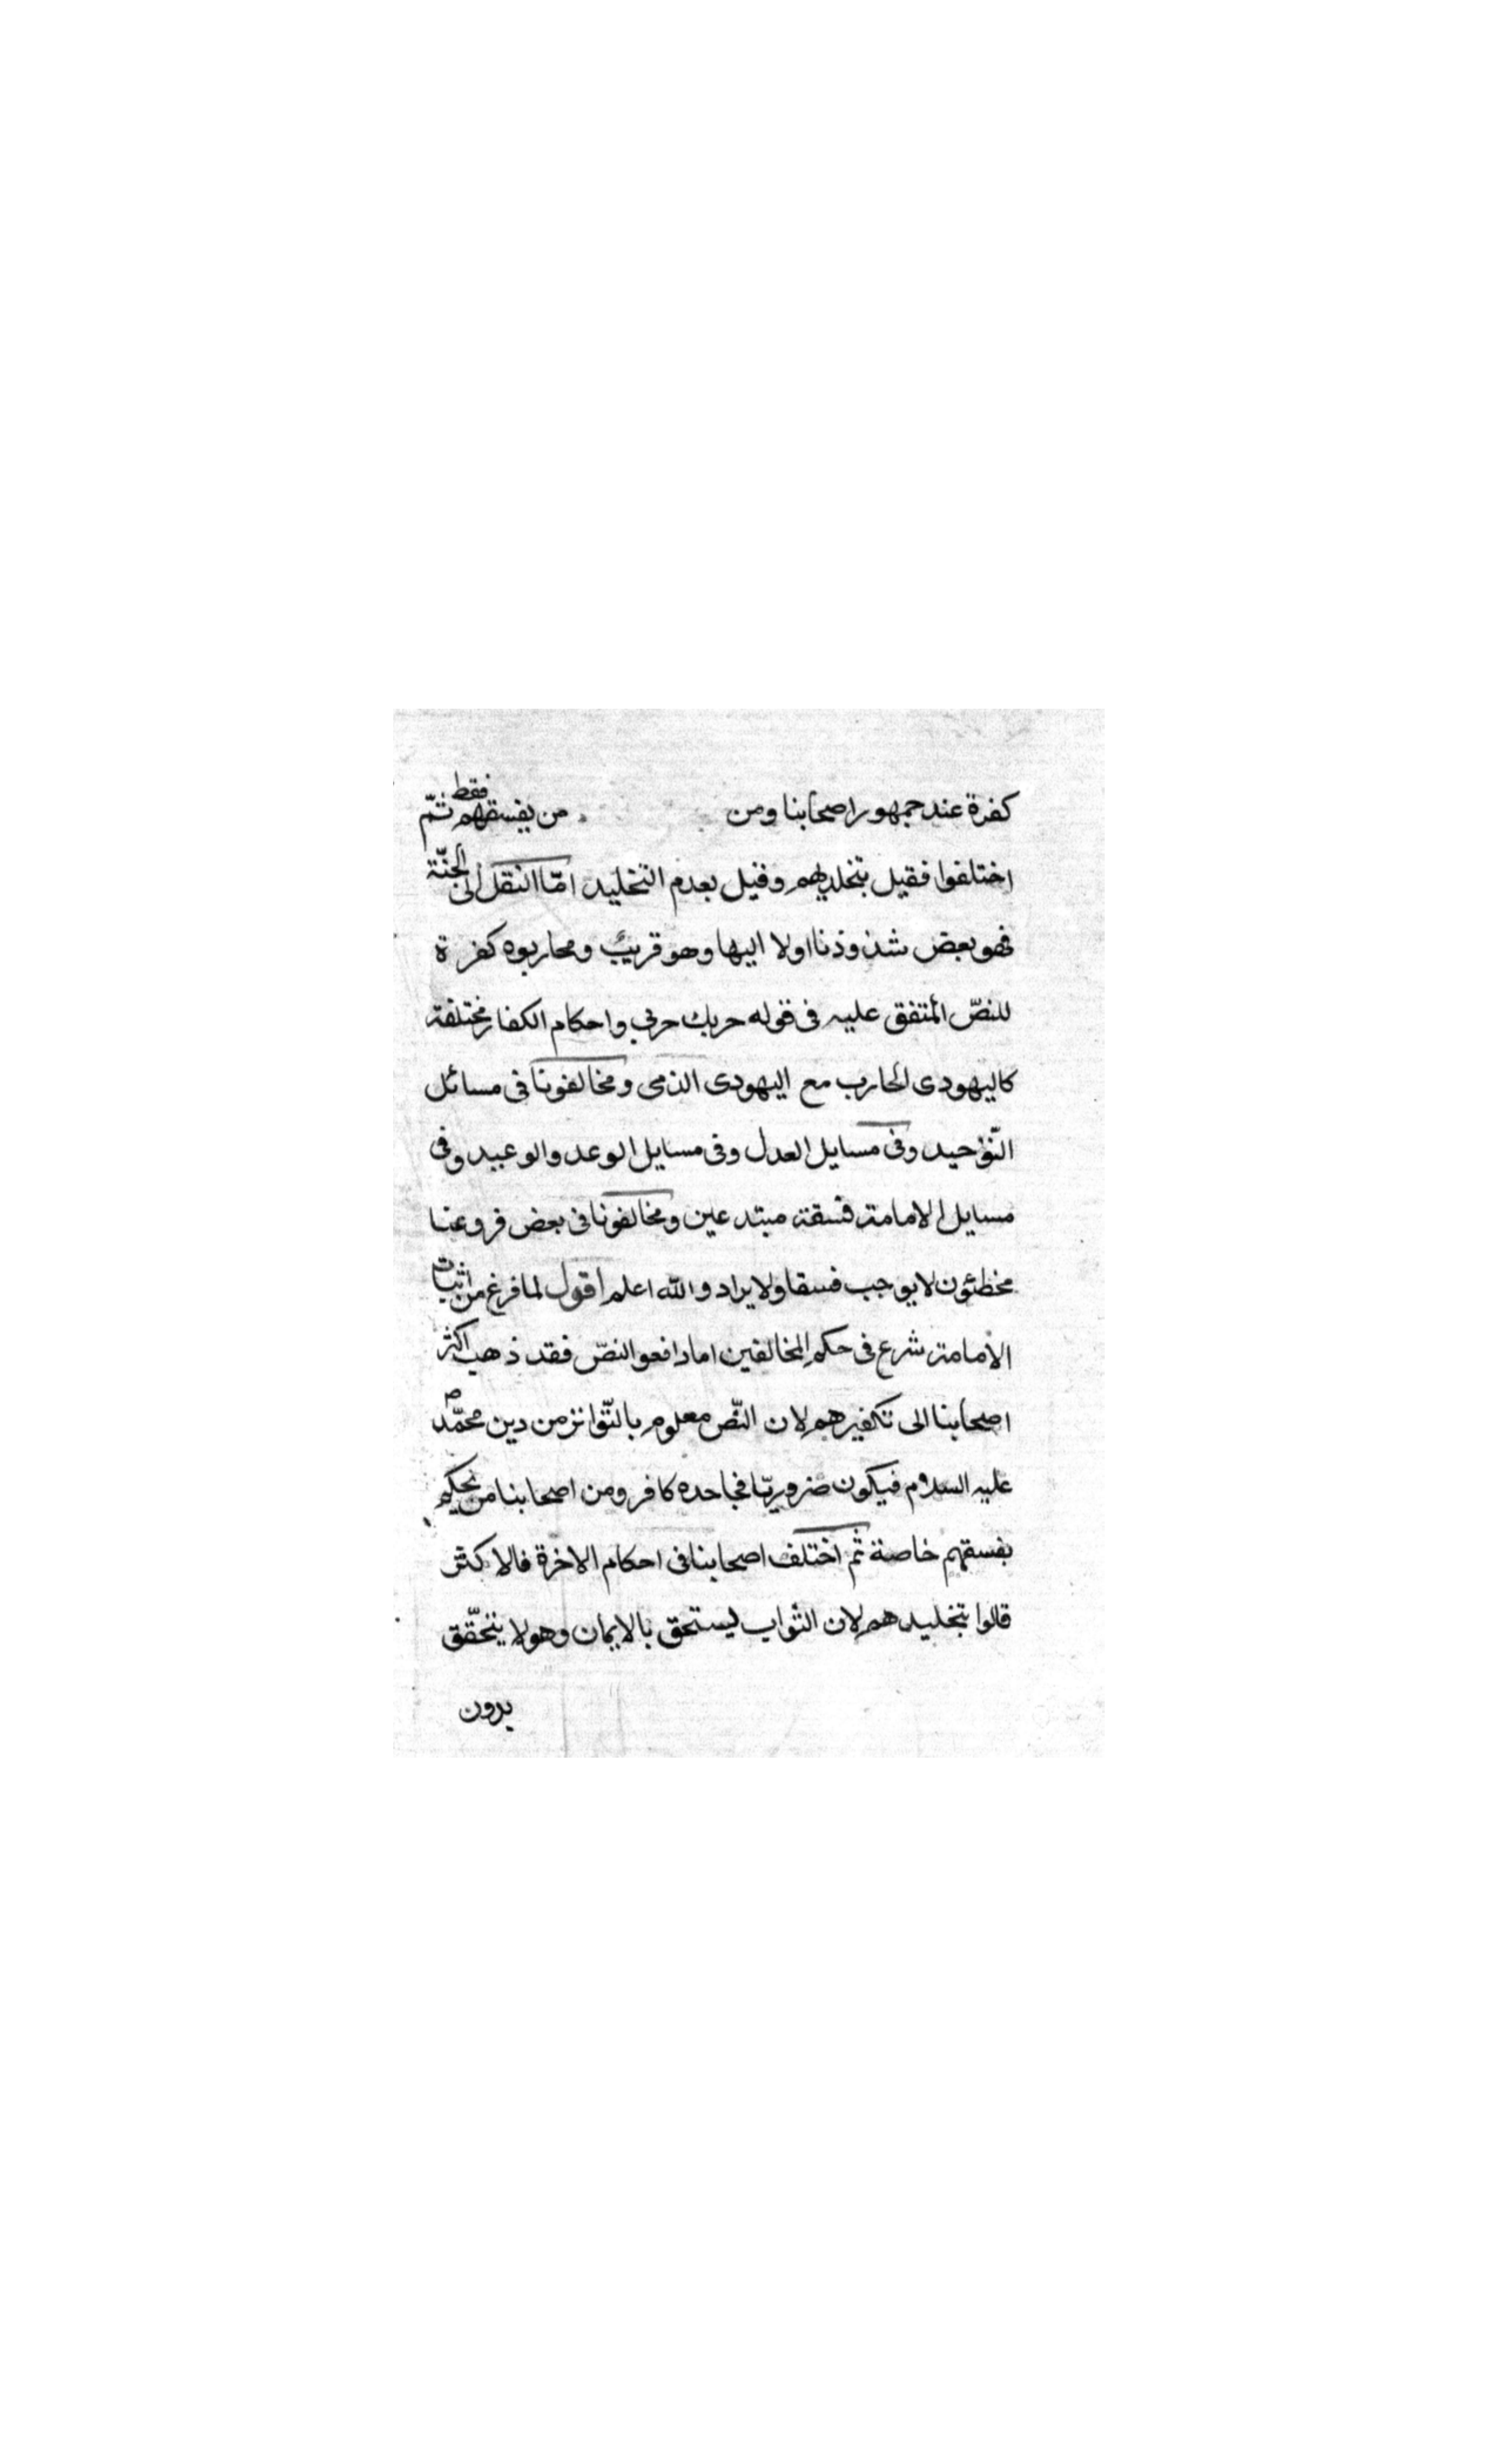 كفرة عند جمهور اصحابنا ومن من يفسقهم فقط ثمّ
اختلفوا فقيل بتخليدهم وقيل بعدم التخليد امّا النقل الى الجنّة
فهو بعض شذوذنا اولا اليها وهو قريب ومحاربوه كفرة
للنصّ المتفق عليه فى قوله حربك حربي واحكام الكفار مختلفة
كاليهودى المحارب مع اليهودى الذمى ومخالفونا فى مسائل
التّوحيد وفى مسايل العدل وفى مسايل الوعد والوعيد وفى
مسايل الامامة فسقة مبتدعين ومخالفونا فى بعض فروعنا
مخطئون لايوجب فسقا ولايراد والله اعلم اقول لما فرغ من اثبات
الامامة شرع فى حكم المخالفين اما دافعوا النصّ فقد ذهب اكثر
اصحابنا الى تكفيرهم لان النّص معلوم بالتّواتر من دين محمّد ص
عليه السلام فيكون ضروريّا فجاحده كافر ومن اصحابنا من يحكم
بفسقهم خاصة ثم اختلف اصحابنا فى احكام الاخرة فالاكثر
قالوا بتخليدهم لان الثواب يستحق بالايمان وهو لا يتحقّق
بدون